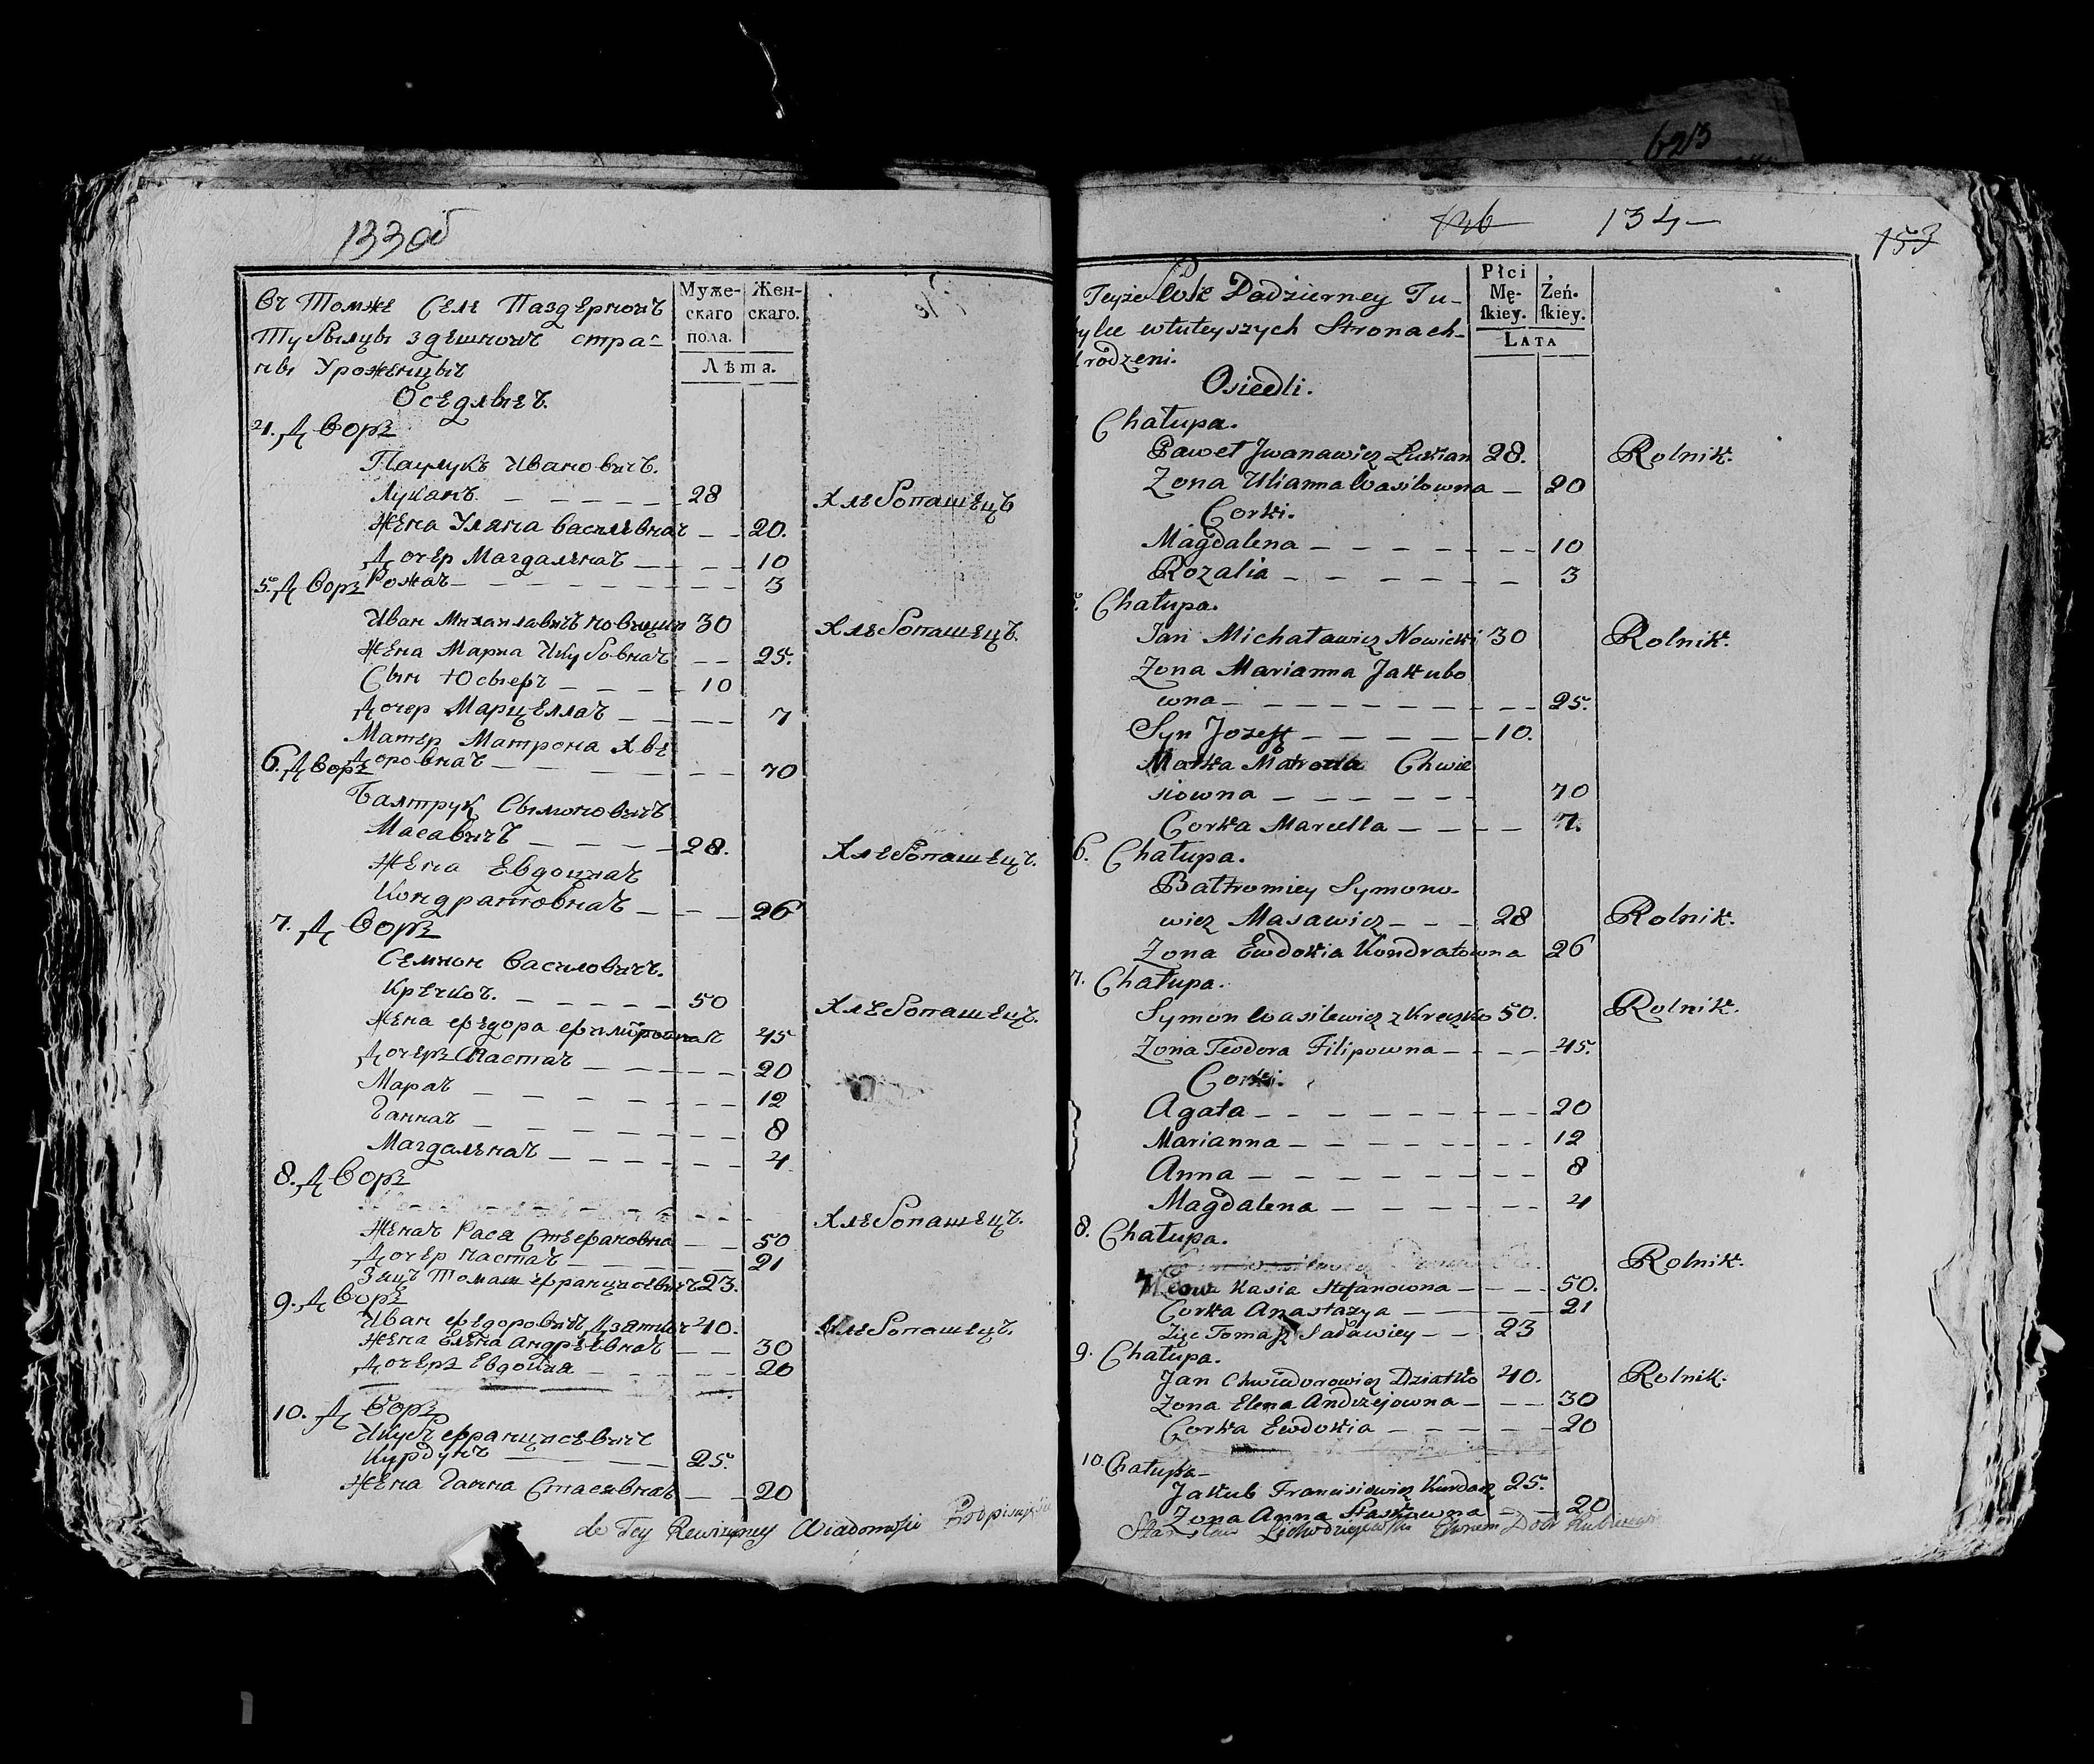 133об
Въ томже Селе Паздерночъ
Тубылцы здешночъ стра=
ны Уроженцыъ
Оседлыеъ.
Муже-
скаго
пола.
Жен-
скаго.
Лѣта.
4. Дворъ
Паулукъ Ивановичъ.
Луканъ. — — — — — 28
Хлебопашецъ
Жена Уляна Василевнаъ — — 20.
Дочер Магдаленаъ — — — 10
5. Дворъ Рожаъ — — — — — — — 3
Иван Михаилавичъ 30
Хлебопашецъ.
Жена Мариа Икубовнаъ — — 25.
Сын Юсыефъ — — — — 10
Дочер Марцеллаъ — — — — 7
Матер Матрона Хве
6. Дворъ доровнаъ — — — — — — 70
Балтрук Сымоновичъ
Масавичъ — — — — 28.
Хлебопашецъ.
Жена Евдокиаъ
Кондратовнаъ — — — 26
7. Дворъ
Семион Василовичъ.
Кречкоъ. — — — — — 50
Хлебопашецъ.
Жена Федора 45
Дочеръ Настаъ — — — — — 20
Мараъ — — — — — — — 12
Ганнаъ — — — — — — — 8
Магдаленаъ — — — — — — 4
8. Дворъ
Хлебопашецъ.
Женаъ Раса Стефановна — — 50
Дочер Настаъ — — — — — 21
Зяцъ Томаш Францисевичъ 23.
9. Дворъ
Иван Федоровичъ Дзятко 40.
Хлебопашецъ.
Жена Елена Андреевнаъ — — 30
Дочеръ Евдокиа — — — — — 20
10. Дворъ
Икуб Францисевичъ
Курдунъ — — — — 25.
Жена Ганна Стасевнаъ — — 20
de Tey Rewizyney Wiadomości Podpisuję się
134
153
623
Teyże Wsi Padzierney Tu-
bylce wtuteyszych Stronach
Urodzeni.
Osiedli.
Płci
Mę-
ſkiey.
Żeń-
ſkiey.
Lata
Chałupa.
Paweł Jwanawicz Lukian 28.
Rolnik.
Zona Ulianna Wasilowna — 20
Corki.
Magdalena — — — — — — — 10
Rozalia — — — — — — 3
5. Chałupa.
Jan Michaławicz Nowicki 30
Rolnik.
Zona Marianna Jakubo
wna — — — — — — — — — 25.
Syn Jozeff — — — — — 10.
Matka Matrona Chwie
siowna — — — — — — 70
Corka Marcella — — — — 7.
6. Chałupa.
Bałtromiey Symono-
wicz Masawicz — — — 28
Rolnik.
Zona Ewdokia Kondratowna 26
7. Chałupa.
Symon Wasilewicz Kreczko 50.
Rolnik.
Zona Teodora Filipowna — — — — 45.
Corki.
Agata — — — — — — — — 20
Marianna — — — — — — — 12
Anna — — — — — — — — 8
Magdalena — — — — — — 4
8. Chałupa.
Rolnik.
Kasia Stefanowna — — — — 50.
Corka Anastazya — — — — — 21
Zięc Tomasz Sadawiey — — 23
9. Chałupa.
Jan Chwiadorowicz Dziatko 40.
Rolnik.
Zona Elena Andrzejowna — — — 30
Corka Ewdokia — — — — — — 20
10. Chałupa —
Jakub Franciśiewicz 25.
Zona Anna Staśkowna — — 20
Stanisław Ekonom Dobr